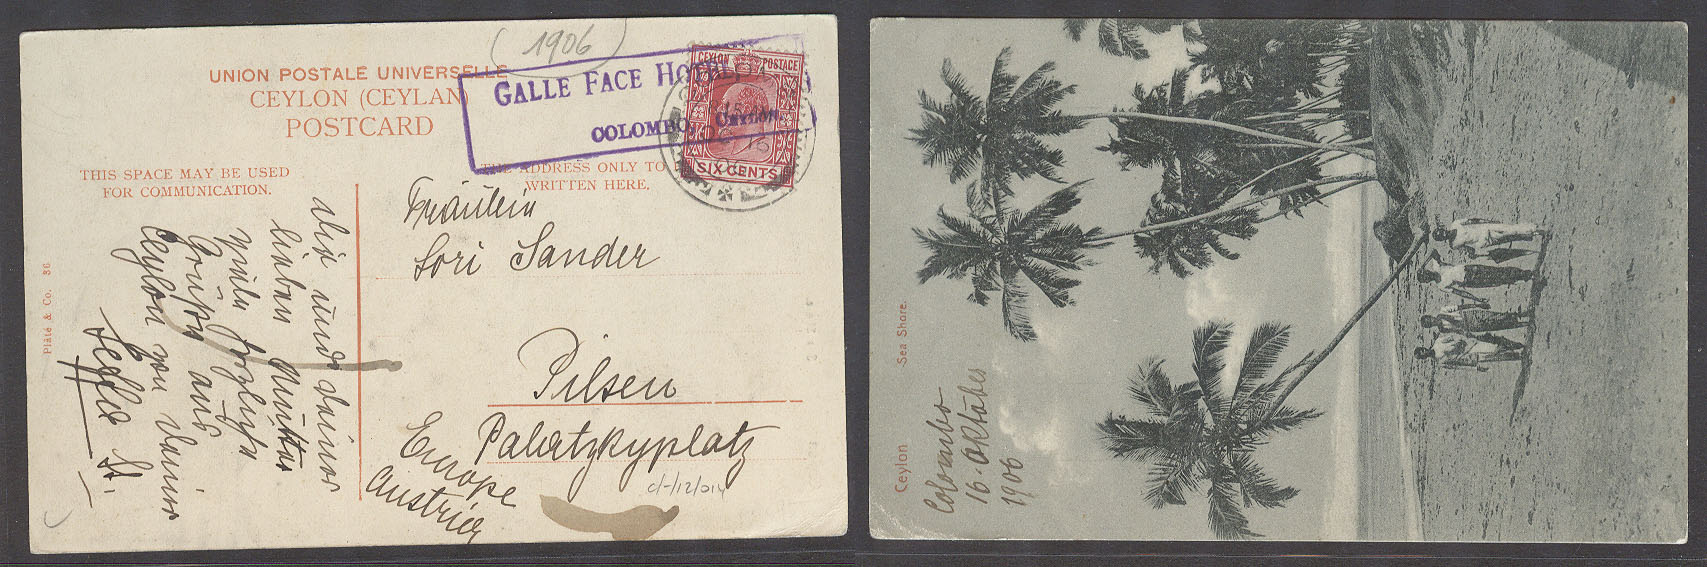 (1906)
UNION POSTALE UNIVERSELLE
CEYLON (CEYLAN)
POSTCARD
THIS SPACE MAY BE USED
FOR COMMUNICATION.
THE ADDRESS ONLY TO
WRITTEN HERE.
GALLE FACE HOTEL
COLOMBO, CEYLON.
CEYLON POSTAGE
SIX CENTS
Dir und deiner
lieben Mutter
viele herzliche
Grüße aus
Ceylon von deiner
Plâté & Co. 36
Fräulein
Lori Sander
Pilsen
Palatzkyplatz
Europe
Austria
c/-/12/014
Ceylon Sea Shore.
Colombo
16. Oktober
1906